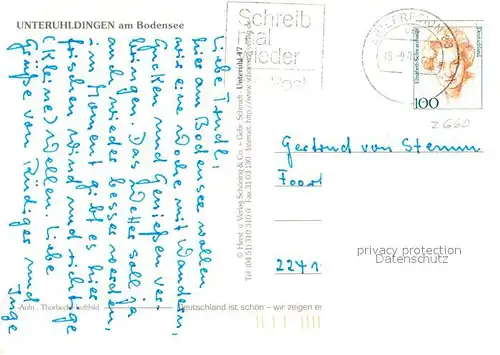 UNTERUHLDINGEN am Bodensee
Schreib
mal
wieder
Post
Deutschland
Elisabeth Schwarzhaupt
100
2660
Liebe Trudl!
hier am Bodensee wollen
wir eine Woche mit Wandern,
Gucken und Genießen ver-
bringen. Das Wetter soll ja
auch wieder besser werden,
im Moment gibt es hier
frischen Wind und richtige
(kleine) Wellen. Liebe
Grüße von Rüdiger und
Inge
© Herst. u. Verlag Schöning & Co. + Gebr. Schmidt
Tel. (04 51) 31 03 10 · Fax 31 03 190 · Internet: http://www.schoening-verlag
Unteruhl 47
Gertrud von Stemm
2241
privacy protection
Datenschutz
Aufn.: Thorbecke Luftbild
Deutschland ist schön – wir zeigen es